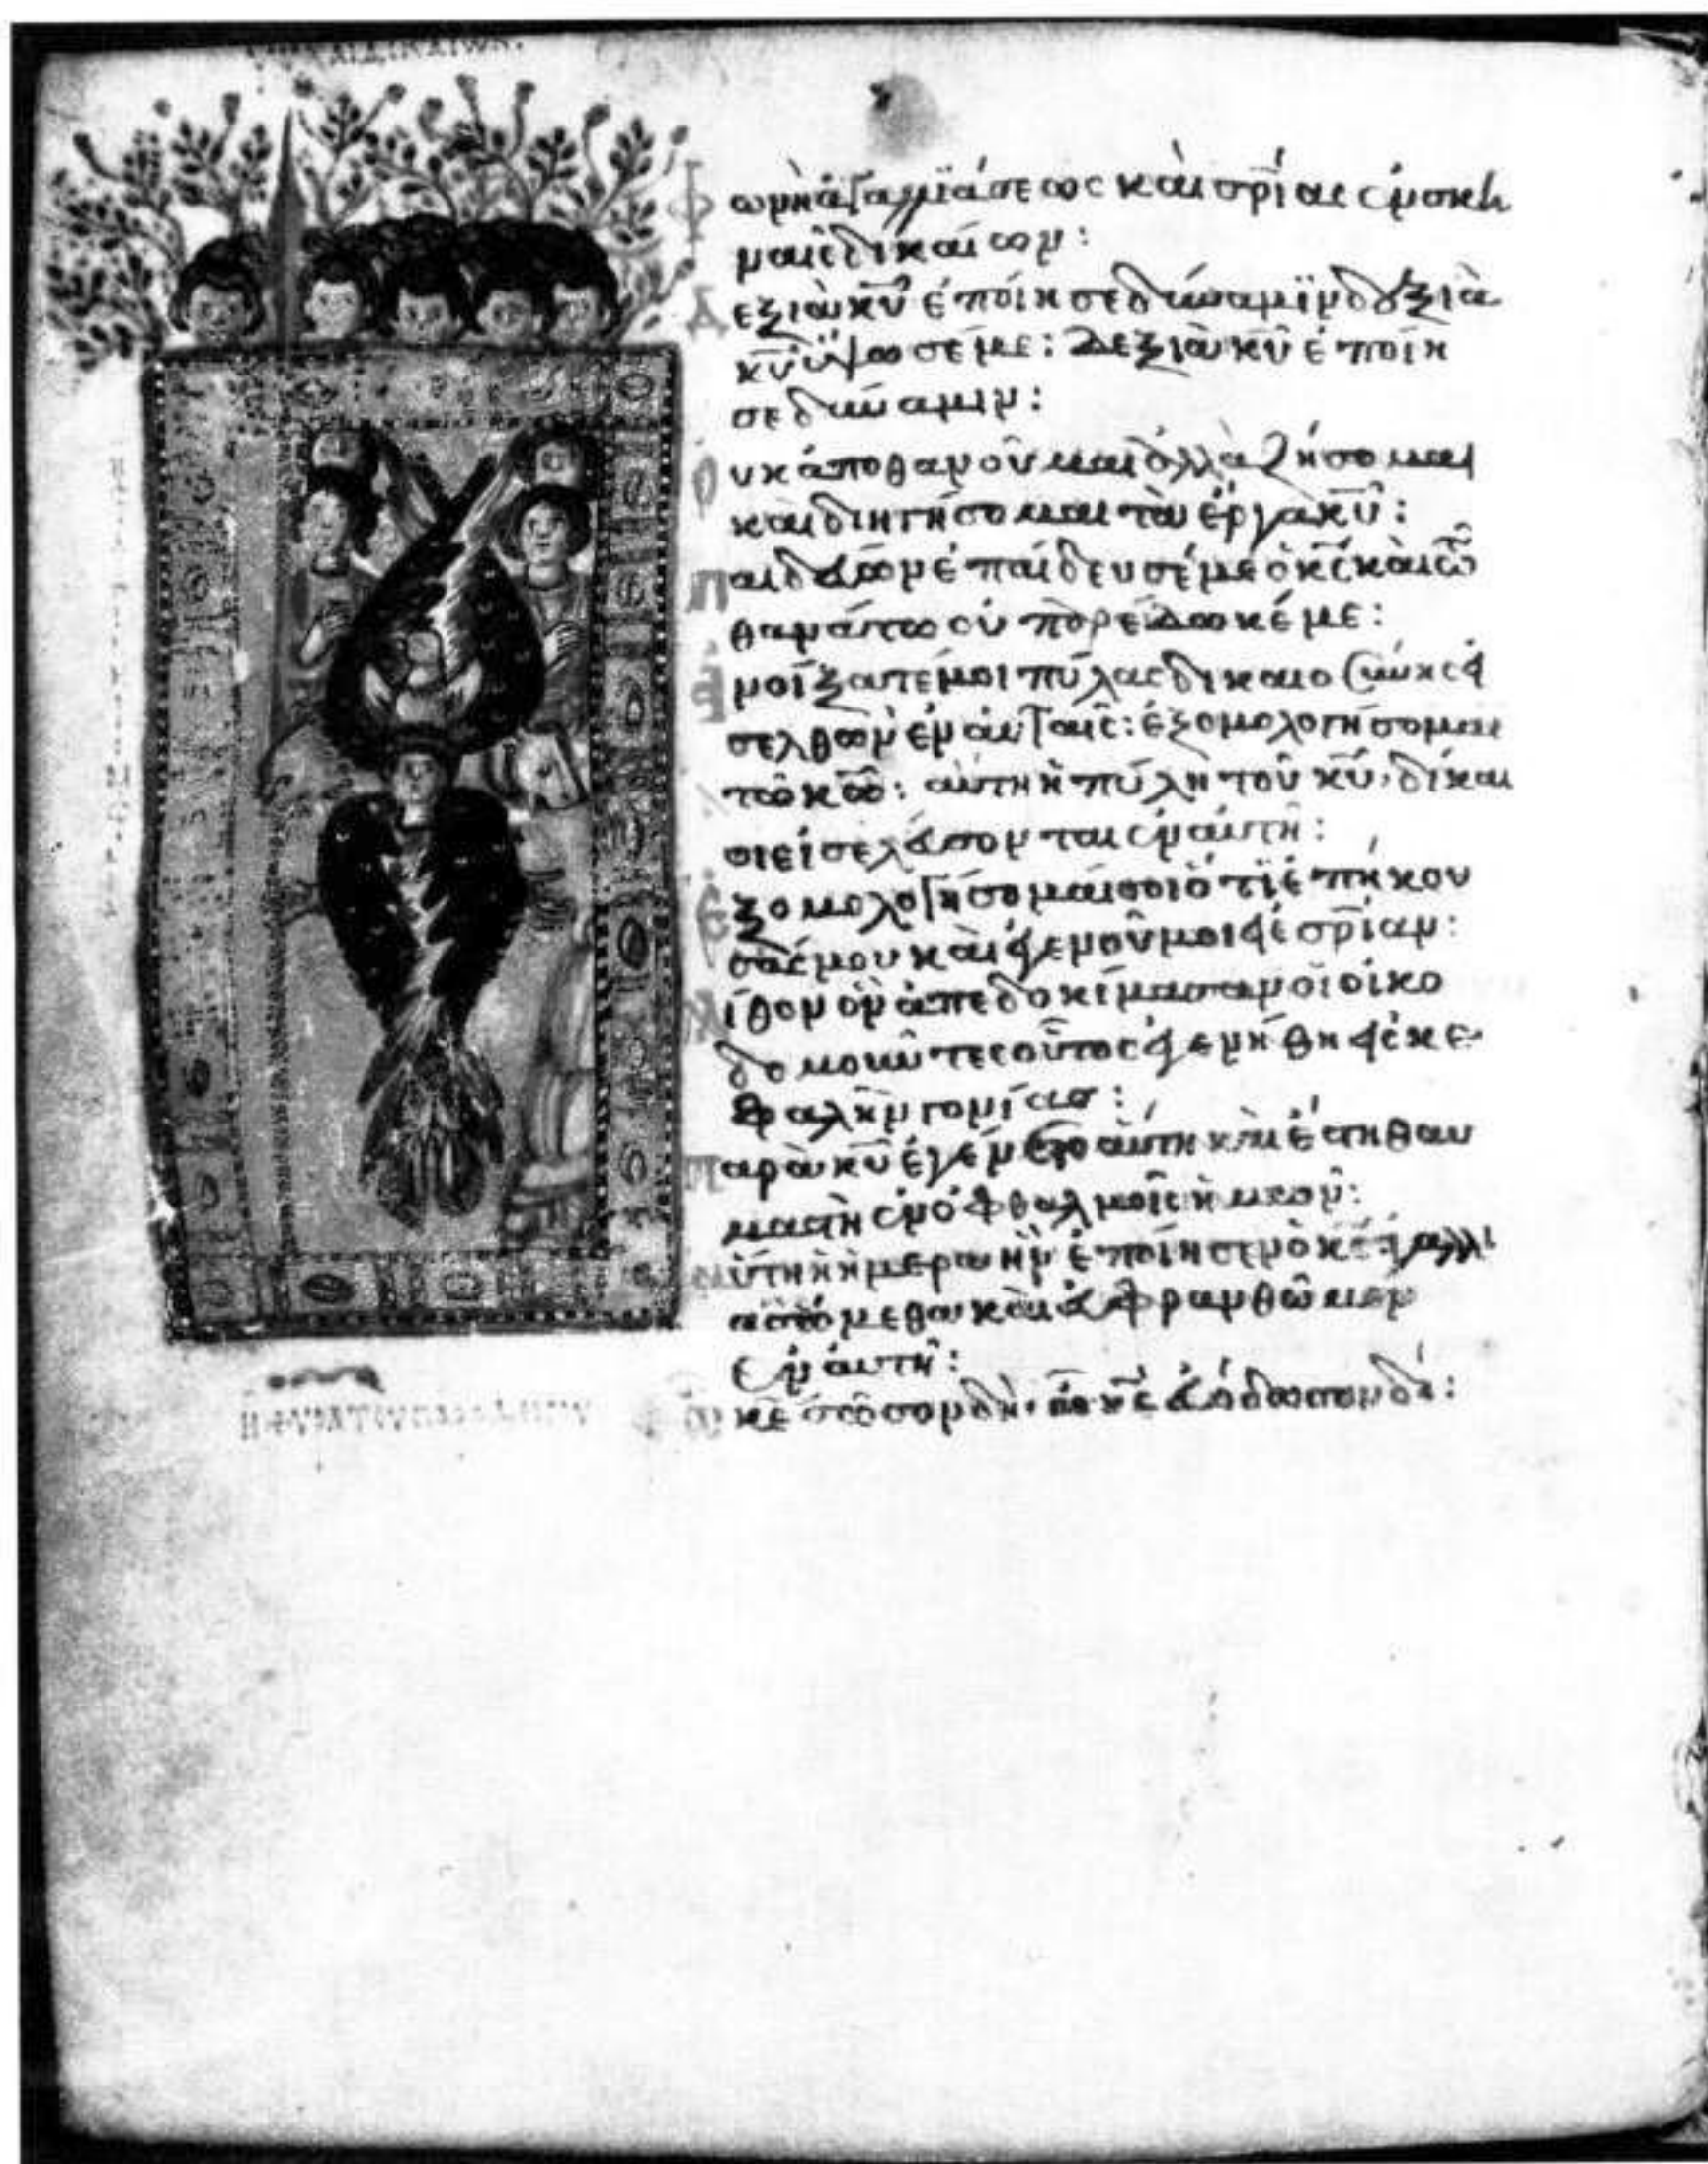 Φωνὴ ἀγαλλϊάσεως καὶ σρ̅ίας ἐν σκη
ναῖς δικαίων:
Δεξιὰ κυ̅ ἐποίησε δύναμϊν δεξιὰ
κυ̅ ὕψωσέ με: Δεξιὰ κυ̅ ἐποίη
σε δύναμιν:
Οὐκ ἀποθανοῦμαι ἀλλὰ ζήσομαι
καὶ διηγήσομαι τὰ ἔργα κυ̅:
Παιδεύων ἐπαίδευσέ με ὁ κς̅ καὶ τῶ
θανάτω οὐ παρέδωκέ με:
Ἀνοίξατέ μοι πύλας δικαιοσύνης εἰ
σελθὼν ἐν αὐταῖς: ἐξομολογήσομαι
τῶ κω̅: αὕτη ἡ πύλη τοῦ κυ̅, δίκαι
οι εἰσελεύσονται ἐν αὐτῆ:
Ἐξομολογήσομαί σοι ὅτι ἐπήκου
σάς μου καὶ ἐγένου μοι εἰς σρ̅ίαν:
Λίθον ὃν ἀπεδοκίμασαν οἱ οἰκο
δομοῦντες οὗτος ἐγενήθη εἰς κε
φαλὴν γωνίας:
Παρὰ κυ̅ ἐγένετο αὕτη καὶ ἔστι θαυ
μαστὴ ἐν ὀφθαλμοῖς ἡμῶν:
Αὕτη ἡ ἡμέρα ἣν ἐποίησεν ὁ κς̅ ἀγαλλι
ασώμεθα καὶ εὐφρανθῶμεν
ἐν αὐτῆ:
Ὦ κε̅ σῶσον δὴ· ὦ κε̅ εὐόδωσον δή: